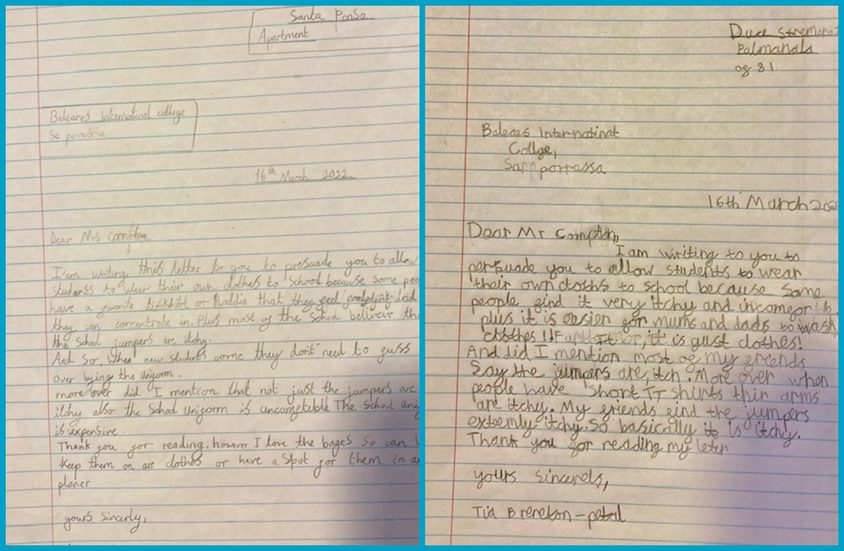 Santa Ponsa
Apartment
Baleares international college
Sa porrassa
16th March 2022
Dear Mrs compton,
I am writing this letter for you to presuade you to allow
students to wear their own clothes to school because some
have a favorite or hoddie that they feel and
they can concentrate in. Plus most of the school bellieve
the school jumpers are itchy.
And so when new students come they don't need to fuss
over bying the uniform.
more over did I mention that not just the jumpers are
itchy also the school uniform is uncomftable The school
is expensive.
Thank you for reading, however I love the bages so can
keep them on are clothes or have a spot for them in
planer
yours sincerly,
Duce
Palmanola
of 81
Baleces Internatinat
Collge,
Sa porrassa
16th March
Dear Mr Compton,
I am writing to you to
persuade you to allow students to wear
their own cloths to school because some
people find it very itchy and
plus it is easier for mums and dads to wash
clothes!! it is gust clothes!
And did I mention most of my friends
say the jumpers are itch. More over when
people have short T shirts thir arms
are itchy. My friends find the jumpers
extemly itchy. So basically it is itchy.
Thank you for reading my leter
yours sincerels,
Tia